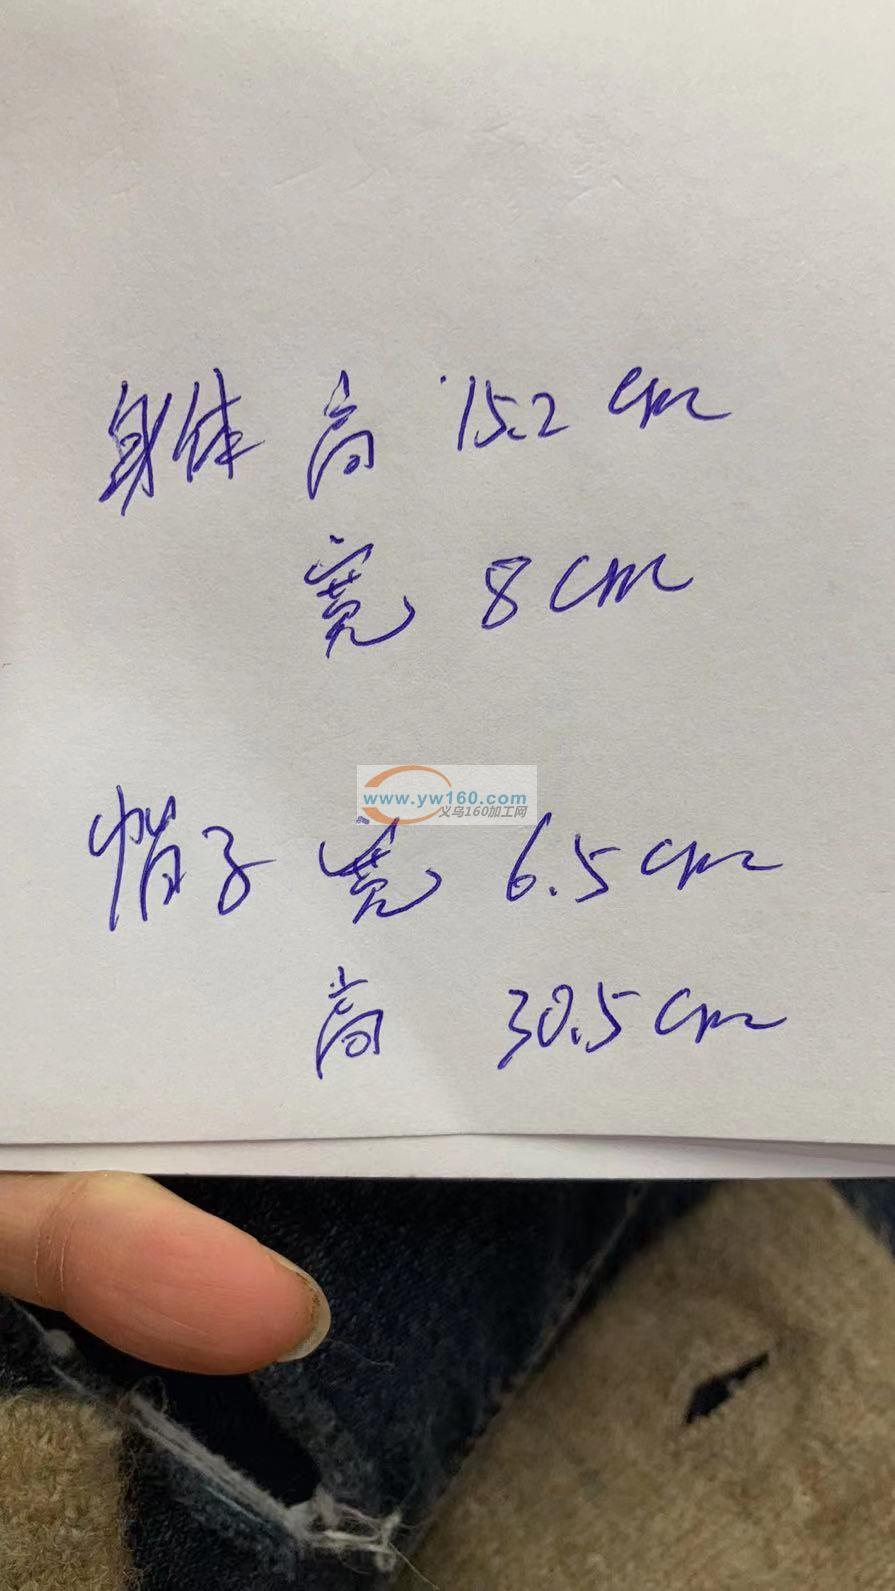 身体 高 15.2 cm
宽 8 cm
www.yw160.com
义乌160加工网
帽子 宽 6.5 cm
高 30.5 cm